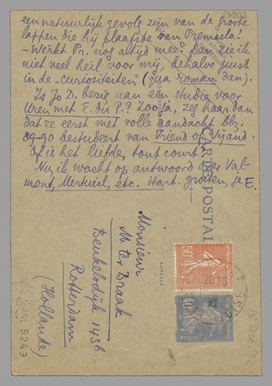 een natuurlijk gevolg zijn van de groote
lappen die hij plaatste van Premsela!
– Werkt Pr. nog altijd mee? Dan zie ik
niet veel heil voor mij, behalve juist
in de "curiositeiten" (qua roman dan).
Is Jo D. bezig aan een studie voor
Uren met E. du P.? Zooja, zeg haar dan
dat ze eerst met volle aandacht blz.
89-90 bestudeert van Vriend of Vijand.
Of is het liefde, tout court?
Nu, ik wacht op antwoord over Val-
mont, Merteuil, etc. Hart. groeten, je E.
CARTE POSTALE
Monsieur
M. ter Braak
Beukelsdijk 143b
Rotterdam
(Hollande)
50